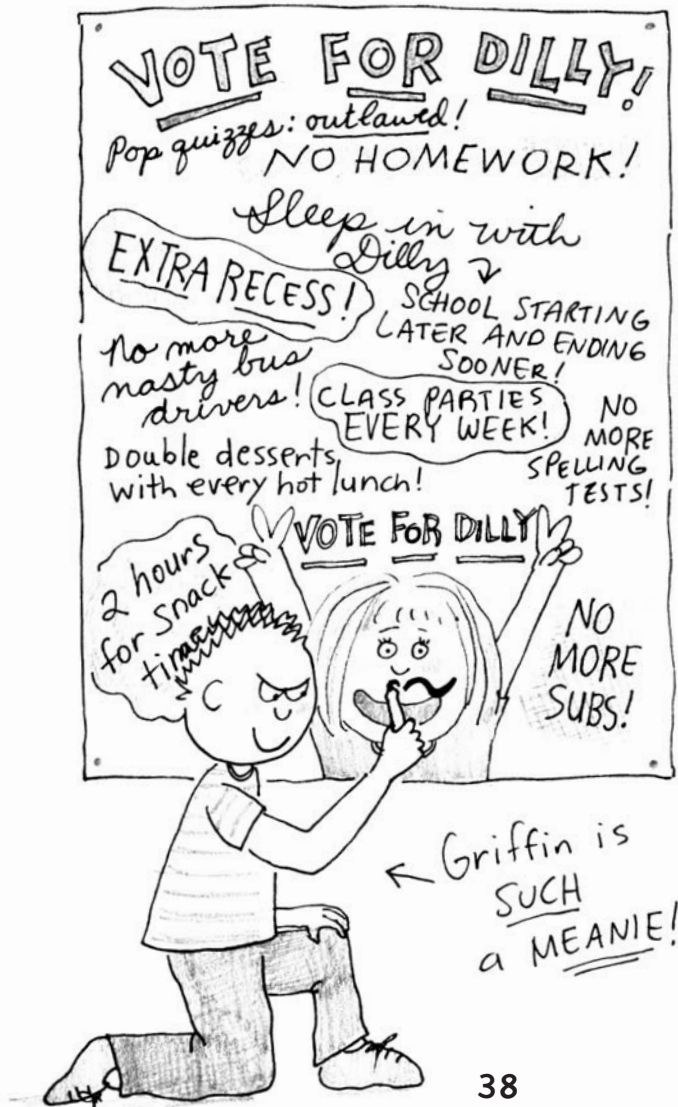 VOTE FOR DILLY!
Pop quizzes: outlawed!
NO HOMEWORK!
Sleep in with
Dilly
EXTRA RECESS!
SCHOOL STARTING
LATER AND ENDING
SOONER!
No more
nasty bus
drivers!
CLASS PARTIES
EVERY WEEK!
NO
MORE
SPELLING
TESTS!
Double desserts
with every hot lunch!
VOTE FOR DILLY
2 hours
for snack
NO
MORE
SUBS!
Griffin is
SUCH
a MEANIE!
38